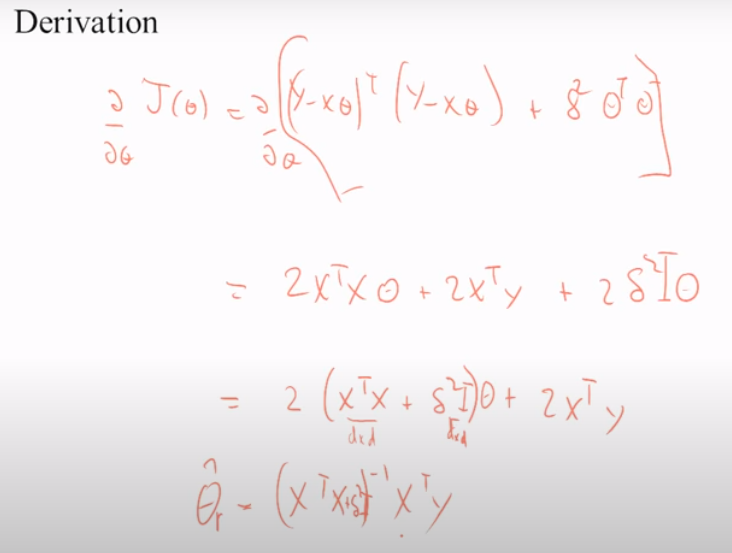 Derivation
∂/∂θ J(θ) = ∂/∂θ [(y-xθ)ᵀ (y-xθ) + δ² θᵀθ]
= 2xᵀxθ + 2xᵀy + 2δ²Iθ
= 2 (xᵀx + δ²I)θ + 2xᵀy
dxd dxd
θ̂ᵣ = (xᵀx+δ²I)⁻¹ xᵀy